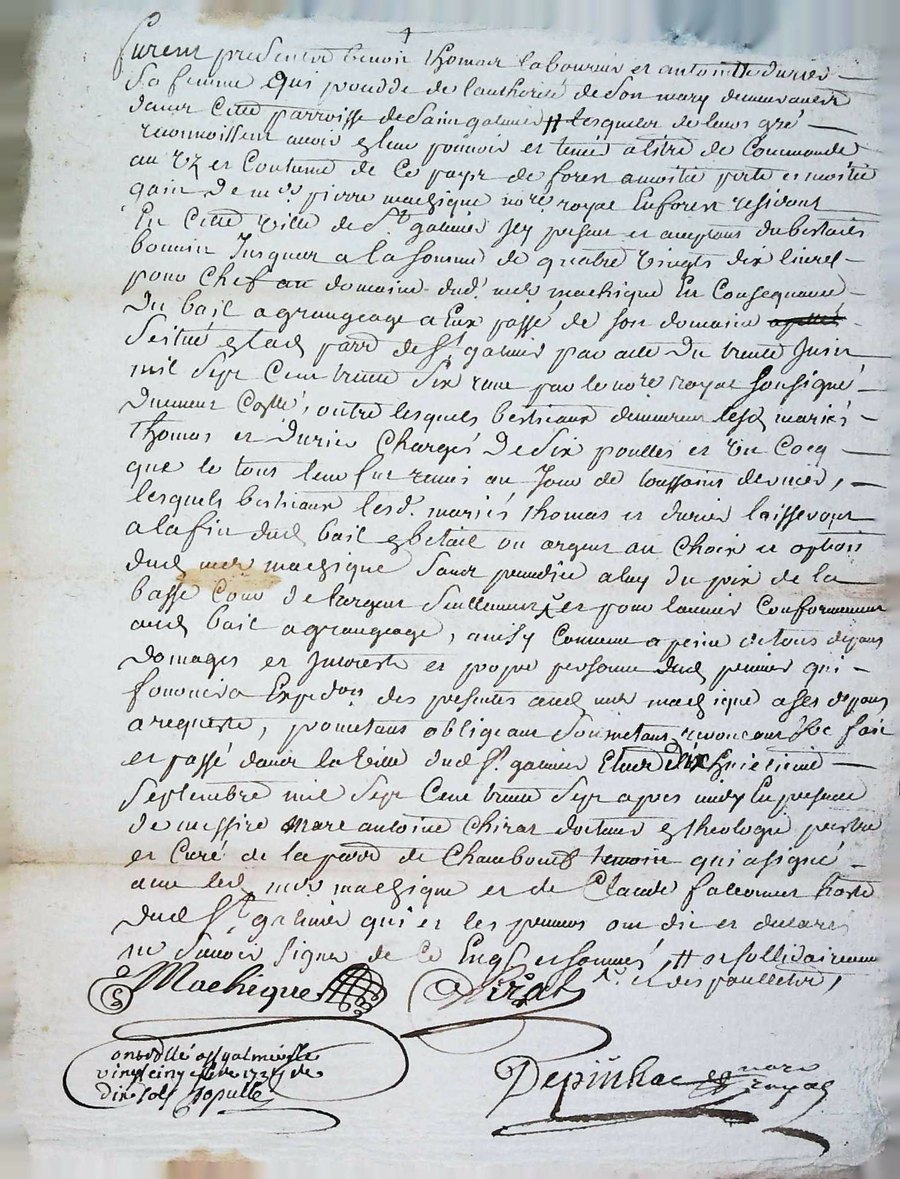 furent presents benoit thomas laboureur et antoinette durier
sa femme qui procede de lauthorité de son mary demeurants
dans cette parroisse de saint galmier # lesquels de leurs gré
reconnoissent avoir et tenir a titre de commande
au uz et coutume de ce pays de forest a moitié perte et moitié
gain de mre pierre machique nore royal en forest residant
en cette ville de st galmier icy present et acceptant des bestiaux
bovins jusques a la somme de quatre vingts dix livres
pour chef au domaine dud. mre machique en consequance
du bail a grangeage a eux passé de son domaine
scitué en lad parre de st galmier par acte du trente juin
mil sept cent trente six recu par le nore royal soussigné
duement collé, outre lesquels bestiaux demeurent lesd mariés
thomas et durier chargés de six poulles et un cocq
que le tous leur fut remis au jour de toussaints dernier,
lesquels bestiaux lesd. mariés thomas et durier laisseront
a la fin dud bail en betail ou argent au choix et option
dud mre machique sans prejudice a luy du prix de la
basse cour de largent seullement et pour lannée conformement
aud bail a grangeage, ainsy comme a peine de tous depans
domages et interests et propre personne dud premier qui
fournira expedon des presentes aud mre machique a ses depans
a requeste, promettans obligeans soumettans renoncans &c fait
et passé dans la ville dud st galmier le dix huictieme
septembre mil sept cent trente sept apres midy en presence
de messire marc antoine chirat docteur en theologie prestre
et curé de la parre de chambœuf temoin qui a signé
avec led mre machique et de claude falconnet hoste
dud st galmier qui et les preneurs ont dit et declaré
ne savoir signer de ce enquis et sommés, # et sollidairement
et des poullets,
Machique Chirat
controllé a st galmier le
vingt cinq 7bre 1737 reçu
dix sols
Depinhac nore
royal